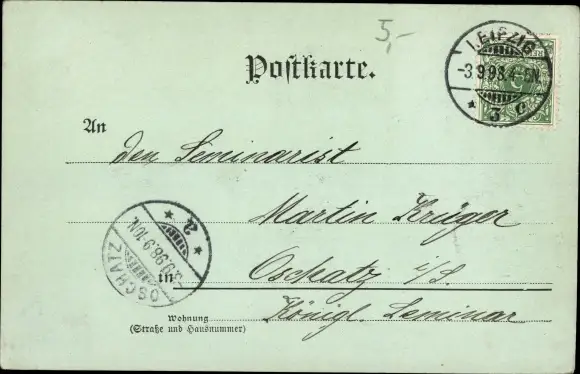 5,-
LEIPZIG
-3.9.98.4-5N.
* 3 c
Postkarte.
An
den Seminarist
Martin Krüger
in Oschatz i/S.
Königl. Seminar
Wohnung
(Straße und Hausnummer)
OSCHATZ
9.98.9-10N.
* 2 *